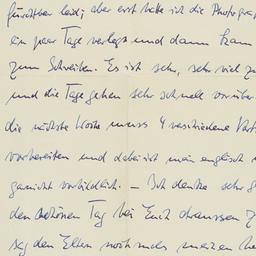 furchtbar leid, aber erst hatte ich die Photogra
ein paar Tage verlegt und dann kam
zum Schreiben. Es ist sehr, sehr viel z
und die Tage gehen sehr schnell vorüber
die nächste Woche muss 4 verschiedene
vorbereiten und dabei ist mein englisch
garnicht vorbildlich. – Ich denke sehr
den schönen Tag bei Euch draussen z
sag den Eltern nochmals meinen he